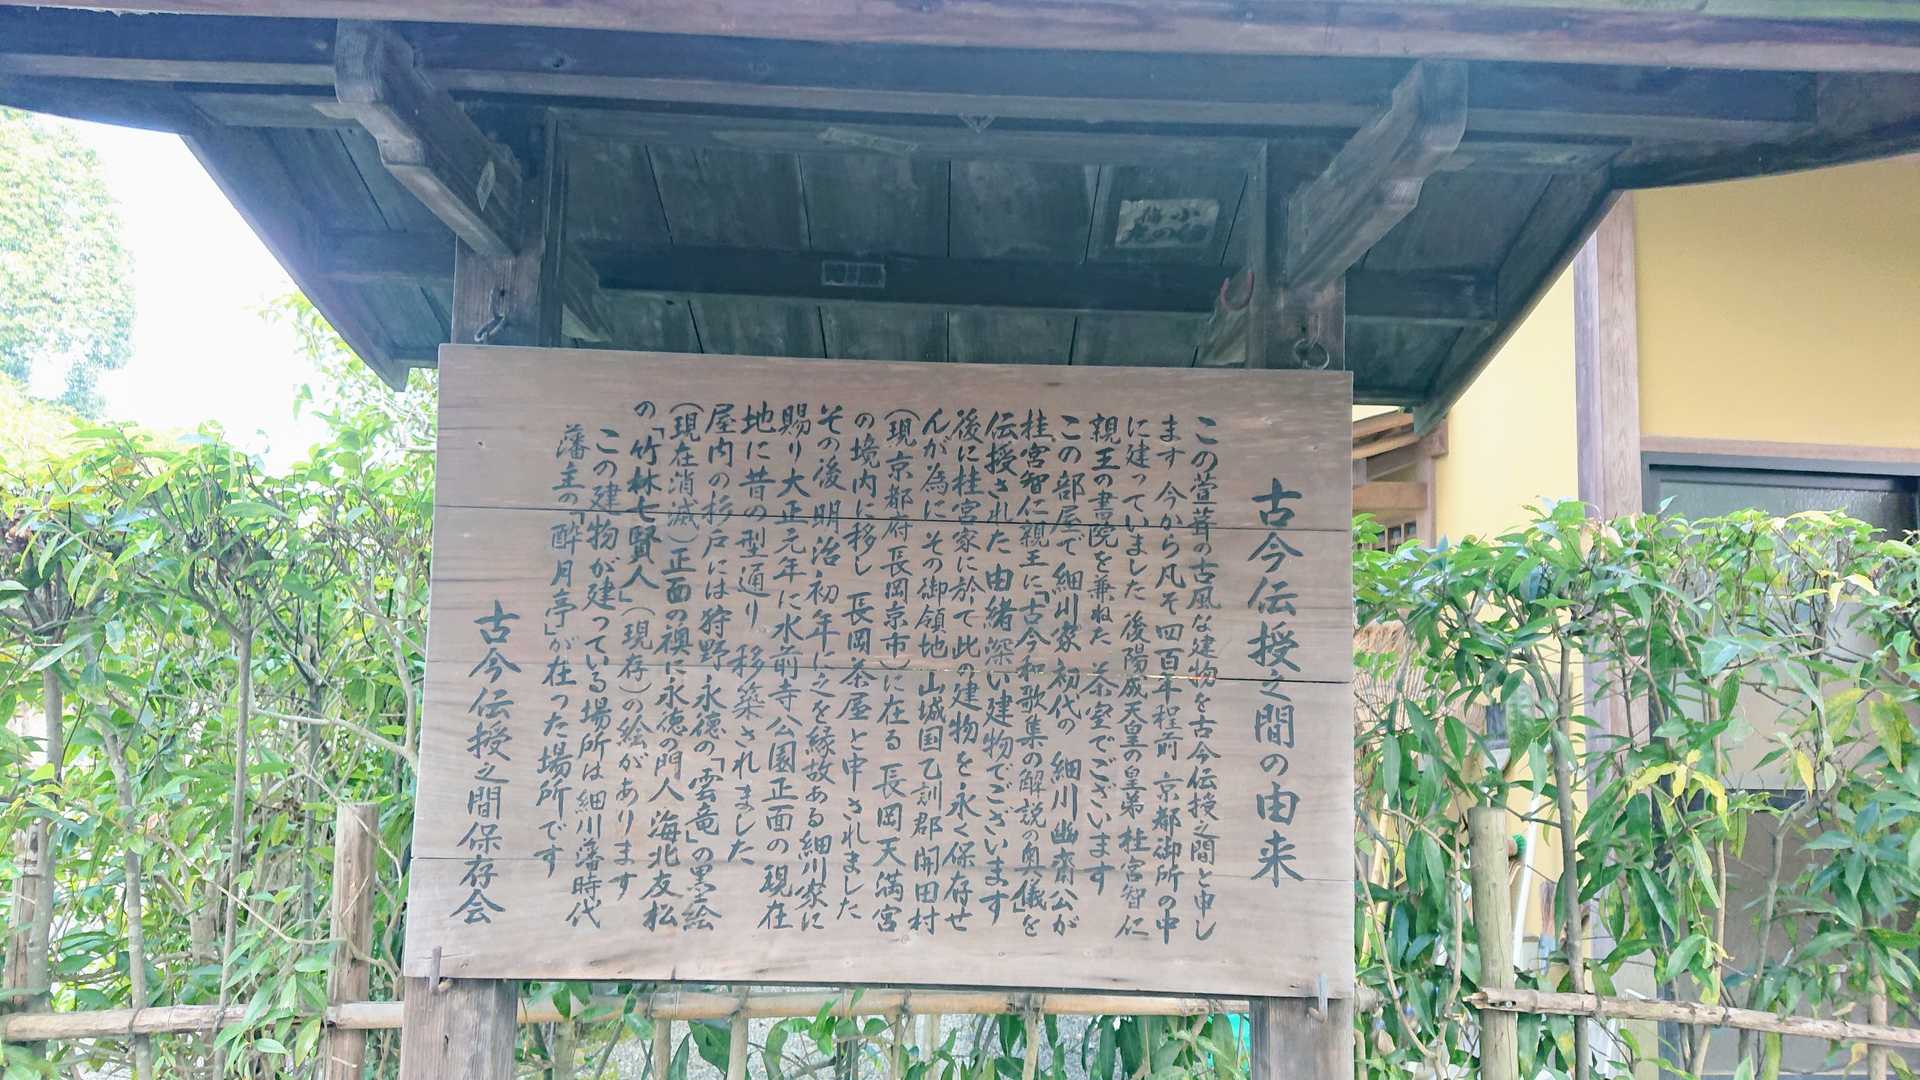 古今伝授之間の由来
この萱葺の古風な建物を古今伝授之間と申し
ます 今から凡そ四百年程前 京都御所の中
に建っていました 後陽成天皇の皇弟 桂宮智仁
親王の書院を兼ねた 茶室でございます
この部屋で 細川家初代の 細川幽齋公が
桂宮智仁親王に「古今和歌集の解説の奥儀」を
伝授された 由緒深い建物でございます
後に桂宮家に於て此の建物を 永く保存せ
んが為に その御領地 山城国乙訓郡開田村
(現京都府長岡京市)に在る 長岡天満宮
の境内に移し 長岡茶屋と申されました
その後 明治初年に之を縁故ある細川家に
賜り 大正元年に水前寺公園正面の 現在
地に 昔の型通り 移築されました
屋内の杉戸には狩野永徳の「雲竜」の墨絵
(現在消滅)正面の襖に永徳の門人 海北友松
の「竹林七賢人」(現存)の絵があります
この建物が建っている場所は細川藩時代
藩主の「酔月亭」が在った場所です
古今伝授之間保存会